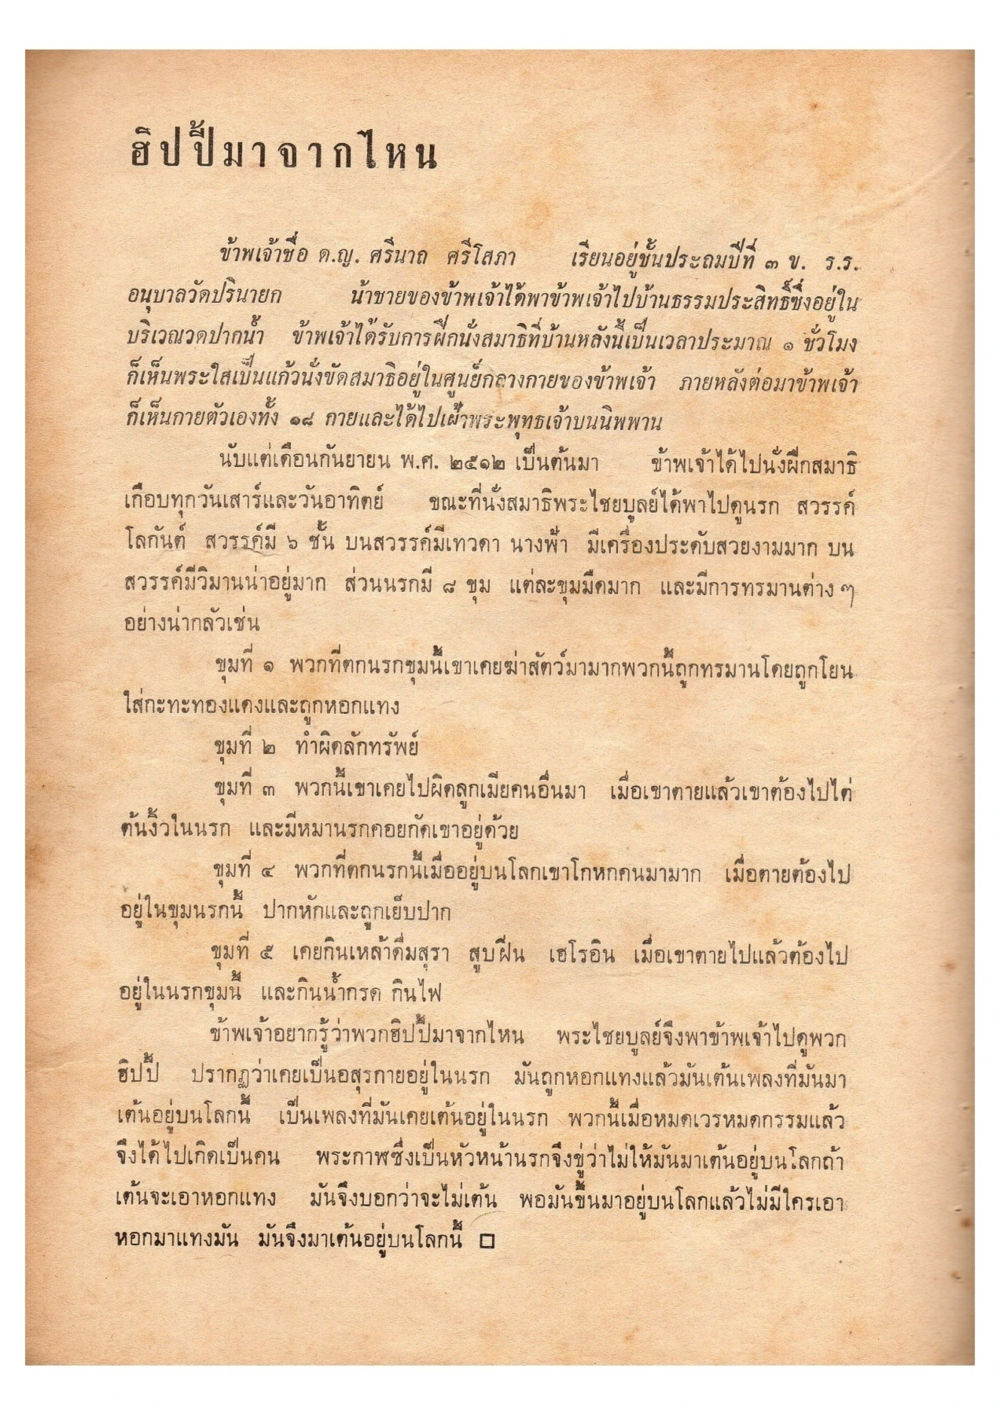 ฮิปปี้มาจากไหน
ข้าพเจ้าชื่อ ด.ญ. ศรีนาถ ศรีโสภา เรียนอยู่ชั้นประถมปีที่ ๓ ข. ร.ร.
อนุบาลวัดปรินายก น้าชายของข้าพเจ้าได้พาข้าพเจ้าไปบ้านธรรมประสิทธิ์ซึ่งอยู่ใน
บริเวณวัดปากน้ำ ข้าพเจ้าได้รับการฝึกนั่งสมาธิที่บ้านหลังนี้เป็นเวลาประมาณ ๑ ชั่วโมง
ก็เห็นพระใสเป็นแก้วนั่งขัดสมาธิอยู่ในศูนย์กลางกายของข้าพเจ้า ภายหลังต่อมาข้าพเจ้า
ก็เห็นกายตัวเองทั้ง ๑๘ กายและได้ไปเฝ้าพระพุทธเจ้าบนนิพพาน
นับแต่เดือนกันยายน พ.ศ. ๒๕๑๒ เป็นต้นมา ข้าพเจ้าได้ไปนั่งฝึกสมาธิ
เกือบทุกวันเสาร์และวันอาทิตย์ ขณะที่นั่งสมาธิพระไชยบูลย์ได้พาไปดูนรก สวรรค์
โลกันต์ สวรรค์มี ๖ ชั้น บนสวรรค์มีเทวดา นางฟ้า มีเครื่องประดับสวยงามมาก บน
สวรรค์มีวิมานน่าอยู่มาก ส่วนนรกมี ๘ ขุม แต่ละขุมมืดมาก และมีการทรมานต่าง ๆ
อย่างน่ากลัวเช่น
ขุมที่ ๑ พวกที่ตกนรกขุมนี้เขาเคยฆ่าสัตว์มามากพวกนี้ถูกทรมานโดยถูกโยน
ใส่กะทะทองแดงและถูกหอกแทง
ขุมที่ ๒ ทำผิดลักทรัพย์
ขุมที่ ๓ พวกนี้เขาเคยไปผิดลูกเมียคนอื่นมา เมื่อเขาตายแล้วเขาต้องไปไต่
ต้นงิ้วในนรก และมีหมานรกคอยกัดเขาอยู่ด้วย
ขุมที่ ๔ พวกที่ตกนรกนี้เมื่ออยู่บนโลกเขาโกหกคนมามาก เมื่อตายต้องไป
อยู่ในขุมนรกนี้ ปากหักและถูกเย็บปาก
ขุมที่ ๕ เคยกินเหล้าดื่มสุรา สูบฝิ่น เฮโรอิน เมื่อเขาตายไปแล้วต้องไป
อยู่ในนรกขุมนี้ และกินน้ำกรด กินไฟ
ข้าพเจ้าอยากรู้ว่าพวกฮิปปี้มาจากไหน พระไชยบูลย์จึงพาข้าพเจ้าไปดูพวก
ฮิปปี้ ปรากฏว่าเคยเป็นอสุรกายอยู่ในนรก มันถูกหอกแทงแล้วมันเต้นเพลงที่มันมา
เต้นอยู่บนโลกนี้ เป็นเพลงที่มันเคยเต้นอยู่ในนรก พวกนี้เมื่อหมดเวรหมดกรรมแล้ว
จึงได้ไปเกิดเป็นคน พระกาฬซึ่งเป็นหัวหน้านรกจึงขู่ว่าไม่ให้มันมาเต้นอยู่บนโลกถ้า
เต้นจะเอาหอกแทง มันจึงบอกว่าจะไม่เต้น พอมันขึ้นมาอยู่บนโลกแล้วไม่มีใครเอา
หอกมาแทงมัน มันจึงมาเต้นอยู่บนโลกนี้ □